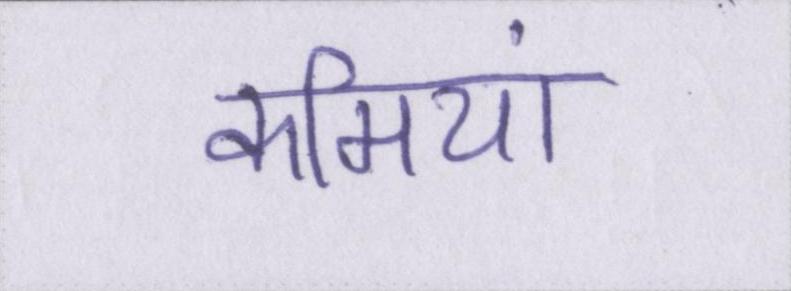 कमियां